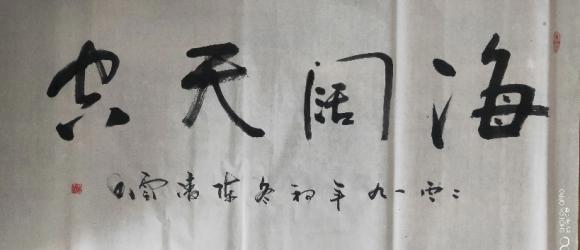 海阔天空
二零一九年初冬陈清云